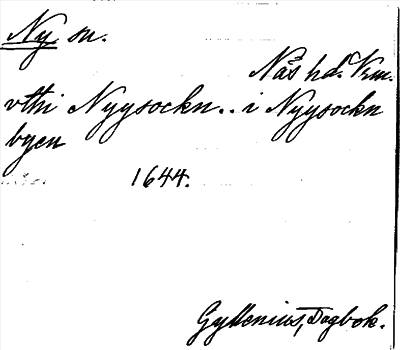 Ny sn.
Näs hd. Vrm.
vthi Nyysockn.. i Nyysockn
byen
1644.
Gyllenius, Dagbok.